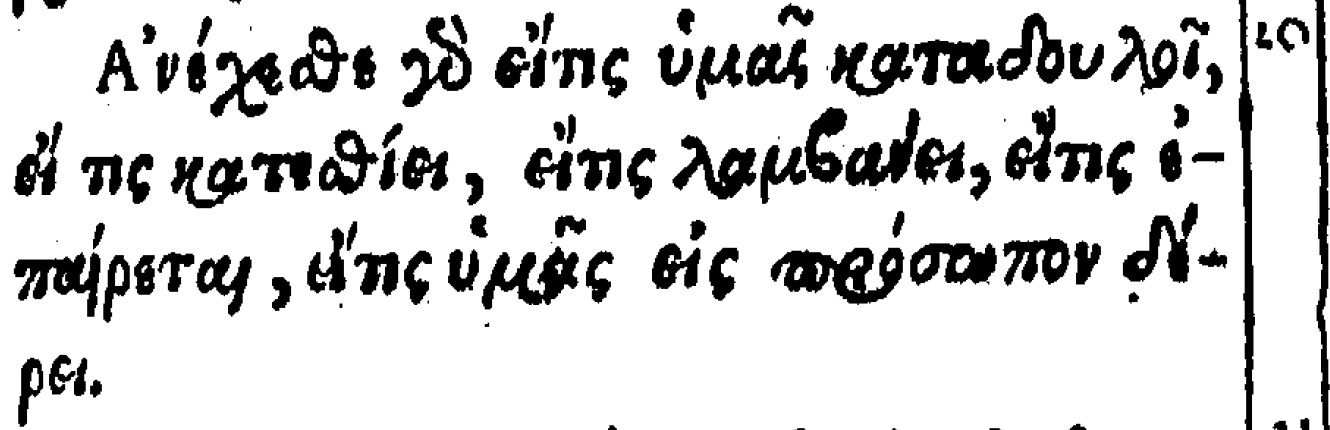 Ἀνέχεσθε γὸ εἴτις ὑμᾶς καταδουλοῖ,
εἴ τις κατεσθίει, εἴτις λαμβάνει, εἴτις ἐ-
παίρεται, εἴτις ὑμᾶς εἰς πρόσωπον δέ-
ρει.